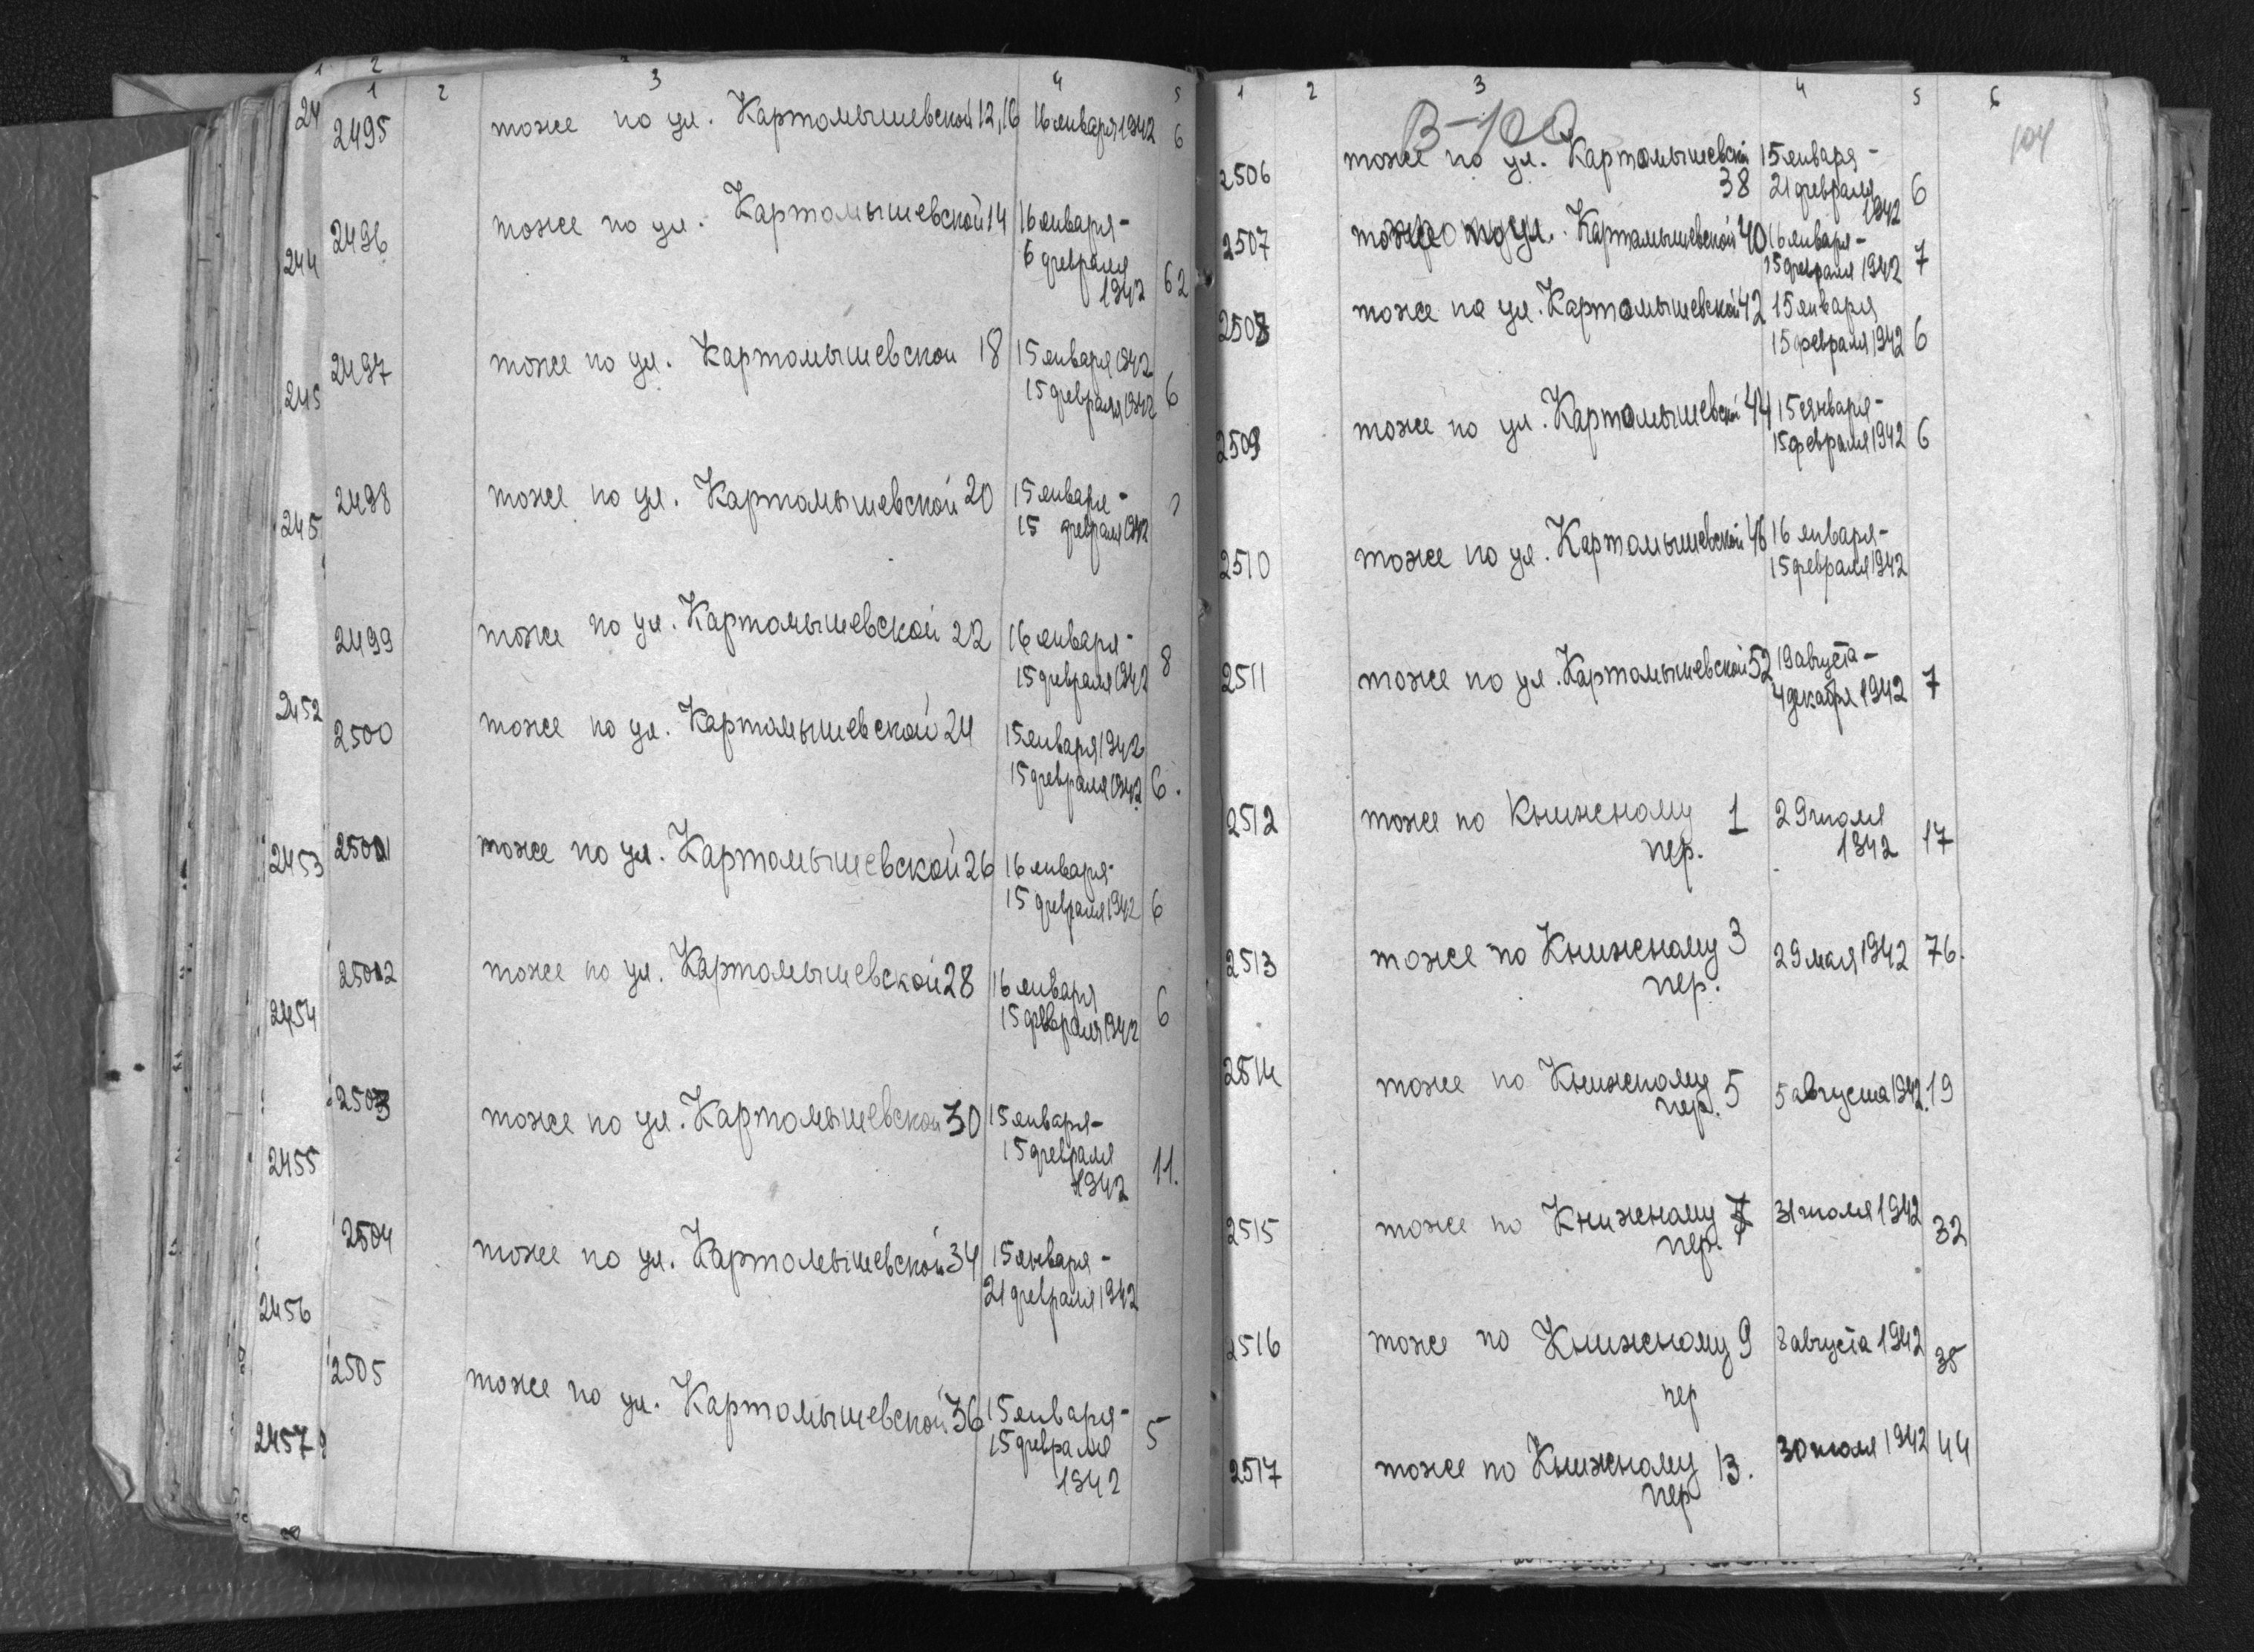 1 2
1 2 3 4 5
24
2495 тоже по ул. Картомышевской 12,16 16 января 1942 6
244
2496 тоже по ул. Картомышевской 14 16 января -
6 февраля
1942 62
245
2497 тоже по ул. Картомышевской 18 15 января 1942
15 февраля 1942 6
245
2498 тоже по ул. Картомышевской 20 15 января -
15 февраля 1942
2499 тоже по ул. Картомышевской 22 16 января -
15 февраля 1942 8
2452
2500 тоже по ул. Картомышевской 24 15 января 1942
15 февраля 1942 6.
2453
2501 тоже по ул. Картомышевской 26 16 января -
15 февраля 1942 6
2502 тоже по ул. Картомышевской 28 16 января
15 февраля 1942 6
2454
2503 тоже по ул. Картомышевской 30 15 января -
15 февраля
1942 11.
2455
2504 тоже по ул. Картомышевской 34 15 января -
21 февраля 1942
2456
2505 тоже по ул. Картомышевской 36 15 января -
15 февраля
1942 5
2457
1 2 3 4 5 6
В-100
104
2506 тоже по ул. Картомышевской 15 января -
38 21 февраля
1942 6
2507 тоже по ул. Картомышевской 40 16 января -
15 февраля 1942 7
2508 тоже по ул. Картомышевской 42 15 января
15 февраля 1942 6
2509 тоже по ул. Картомышевской 44 15 января -
15 февраля 1942 6
2510 тоже по ул. Картомышевской 46 16 января -
15 февраля 1942
2511 тоже по ул. Картомышевской 52 19 августа -
4 декабря 1942 7
2512 тоже по Книжному 1 29 июля
пер. 1942 17
2513 тоже по Книжному 3 29 мая 1942 76.
пер.
2514 тоже по Книжному 5 5 августа 1942. 19
пер.
2515 тоже по Книжному 7 31 июля 1942 32
пер.
2516 тоже по Книжному 9 8 августа 1942 38
пер
2517 тоже по Книжному 13. 30 июля 1942 44
пер